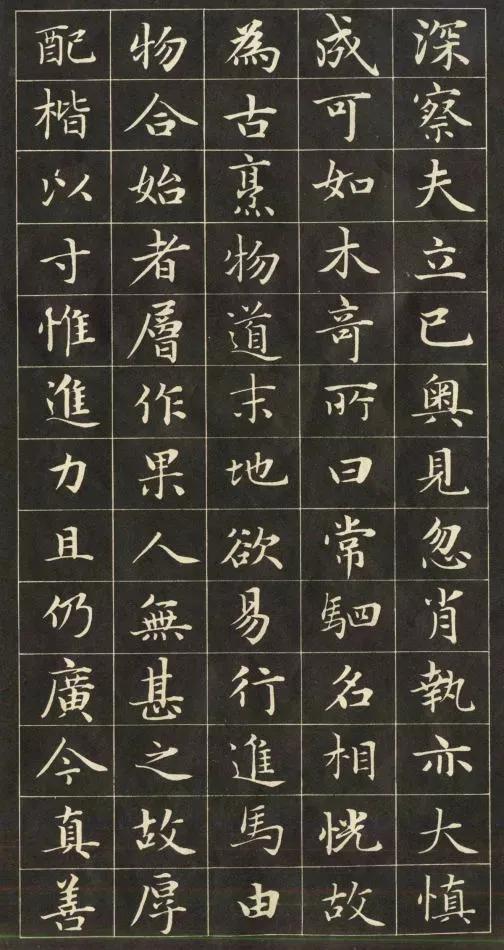 深察夫立已奥見忽肖執亦大慎
成可如木竒所曰常駟名相恍故
為古烹物道末地欲易行進馬由
物合始者層作果人無甚之故厚
配楷以寸惟進力且仍廣今真善